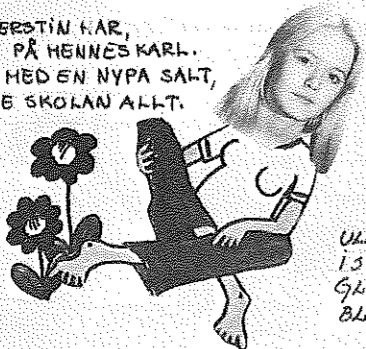 ERSTIN HAR,
PÅ HENNES KARL.
MED EN NYPA SALT,
E SKOLAN ALLT.
UL
IS
GL
BL